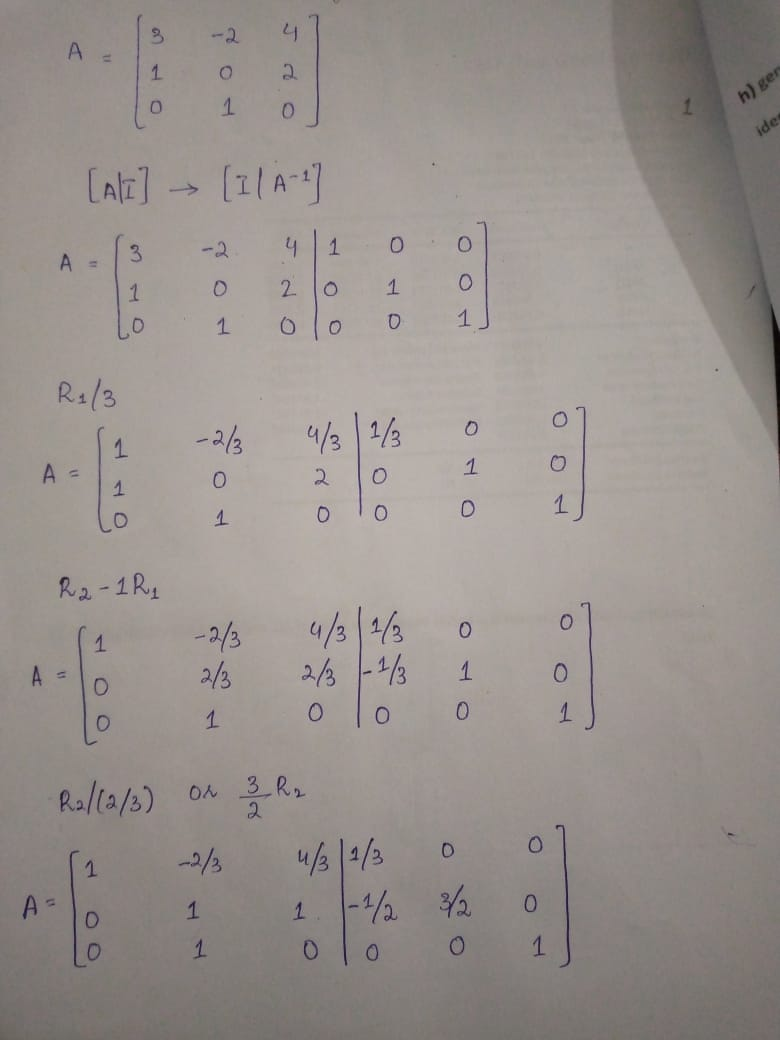 A = [3 -2 4
1 0 2
0 1 0]
[A|I] → [I|A⁻¹]
A = [3 -2 4 | 1 0 0
1 0 2 | 0 1 0
0 1 0 | 0 0 1]
R₁/3
A = [1 -2/3 4/3 | 1/3 0 0
1 0 2 | 0 1 0
0 1 0 | 0 0 1]
R₂ - 1R₁
A = [1 -2/3 4/3 | 1/3 0 0
0 2/3 2/3 | -1/3 1 0
0 1 0 | 0 0 1]
R₂/(2/3) or 3/2 R₂
A = [1 -2/3 4/3 | 1/3 0 0
0 1 1 | -1/2 3/2 0
0 1 0 | 0 0 1]
1
h)